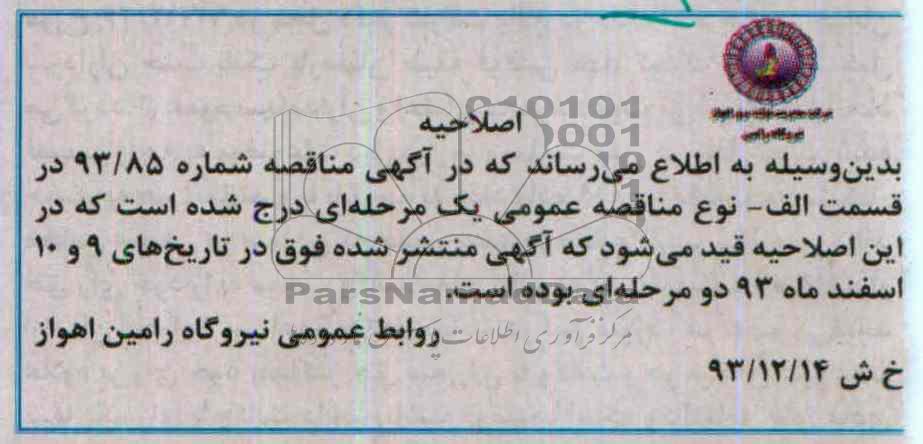 اصلاحیه
بدین‌وسیله به اطلاع می‌رساند که در آگهی مناقصه شماره ۹۳/۸۵ در
قسمت الف- نوع مناقصه عمومی یک مرحله‌ای درج شده است که در
این اصلاحیه قید می‌شود که آگهی منتشر شده فوق در تاریخ‌های ۹ و ۱۰
اسفند ماه ۹۳ دو مرحله‌ای بوده است.
ParsNamadData
مرکز فرآوری اطلاعات
روابط عمومی نیروگاه رامین اهواز
خ ش ۹۳/۱۲/۱۴